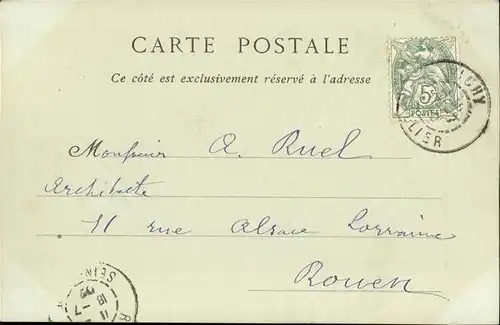 CARTE POSTALE
Ce côté est exclusivement réservé à l'adresse
5c
POSTES
VICHY
ALLIER
Monsieur A. Ruel
Architecte
11 rue Alsace Lorraine
Rouen
SEINE
11
18 -7